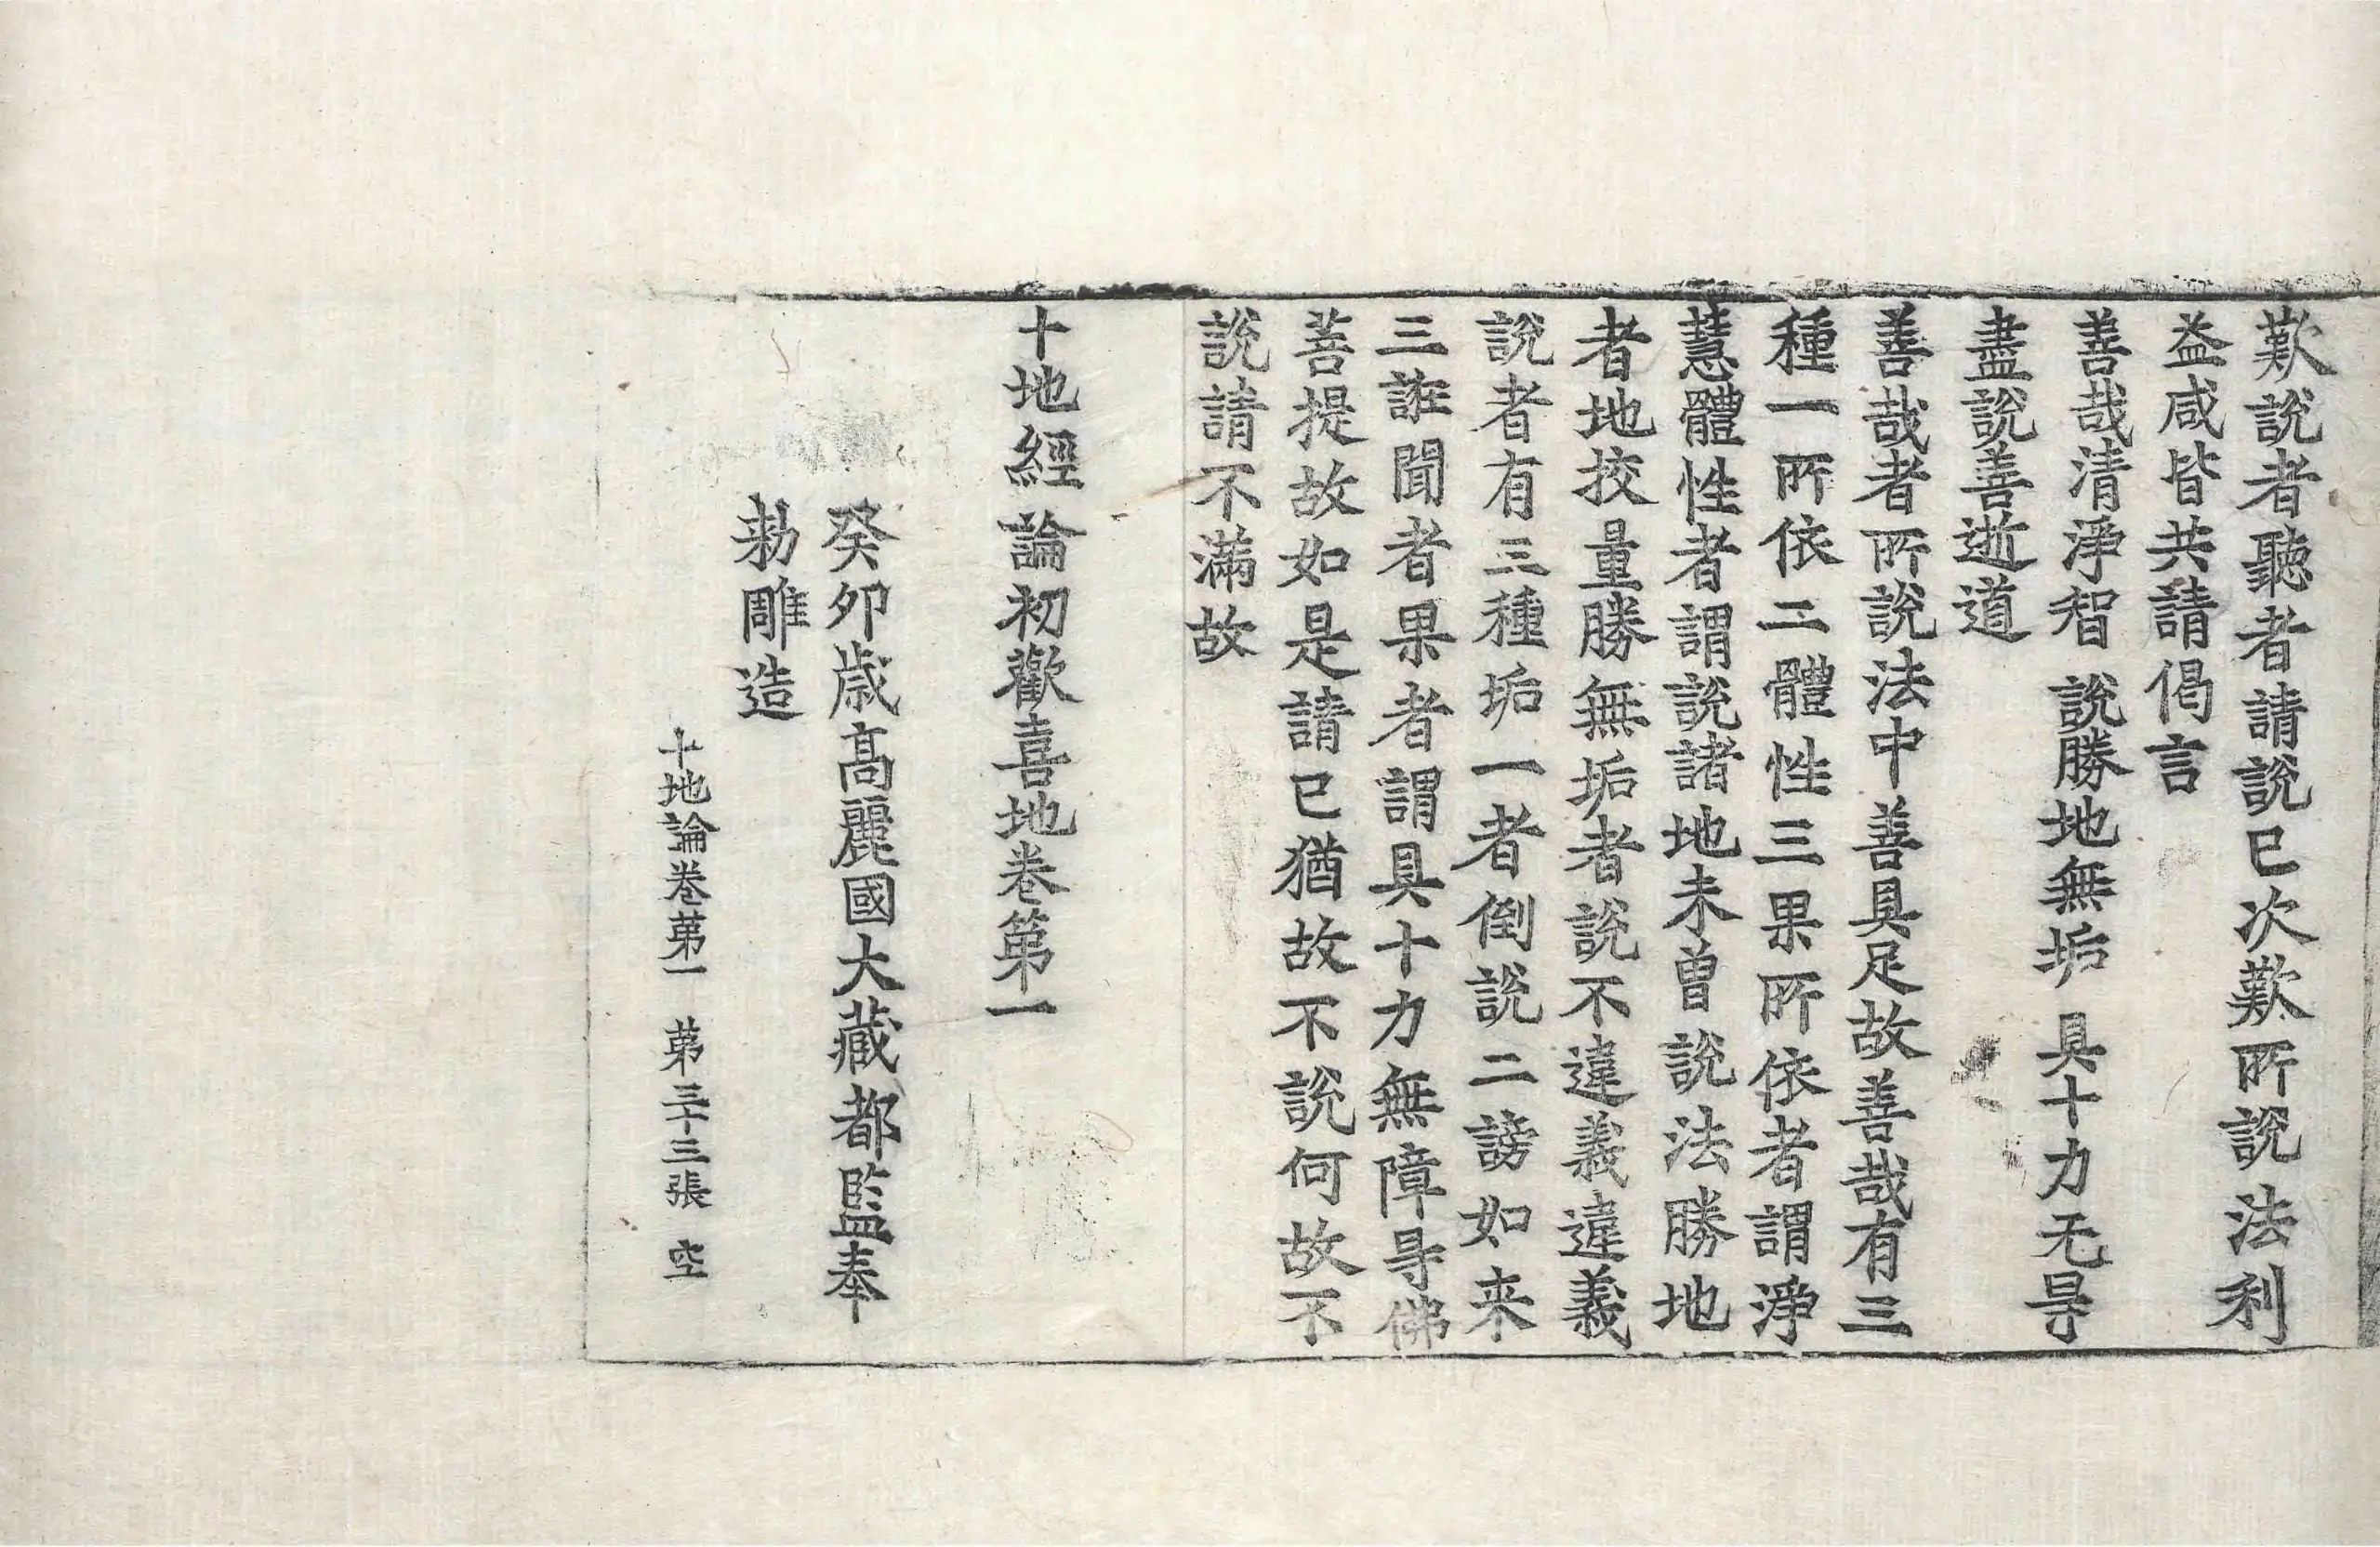 歎說者聽者請說已次歎所說法利
益咸皆共請偈言
善哉清淨智 說勝地無垢 具十力无㝵
盡說善逝道
善哉者所說法中善具足故善哉有三
種一所依二體性三果所依者謂淨
慧體性者謂說諸地未曾說法勝地
者地挍量勝無垢者說不違義違義
說者有三種垢一者倒說二謗如来
三誑聞者果者謂具十力無障㝵佛
菩提故如是請已猶故不說何故不
說請不滿故
十地經論初歡喜地卷第一
癸夘歳髙麗國大藏都監奉
勑雕造
十地論卷苐一 苐三十三張 空